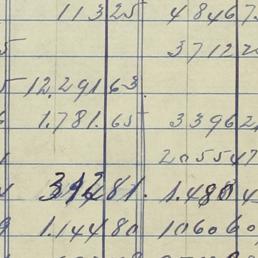 113 25 4846 7
5 3712 2
5 12.291 63.
6 1.781. 65 3396 2
1 2055 47
4 81. 1.480 4
9 1.144 80 1060 60